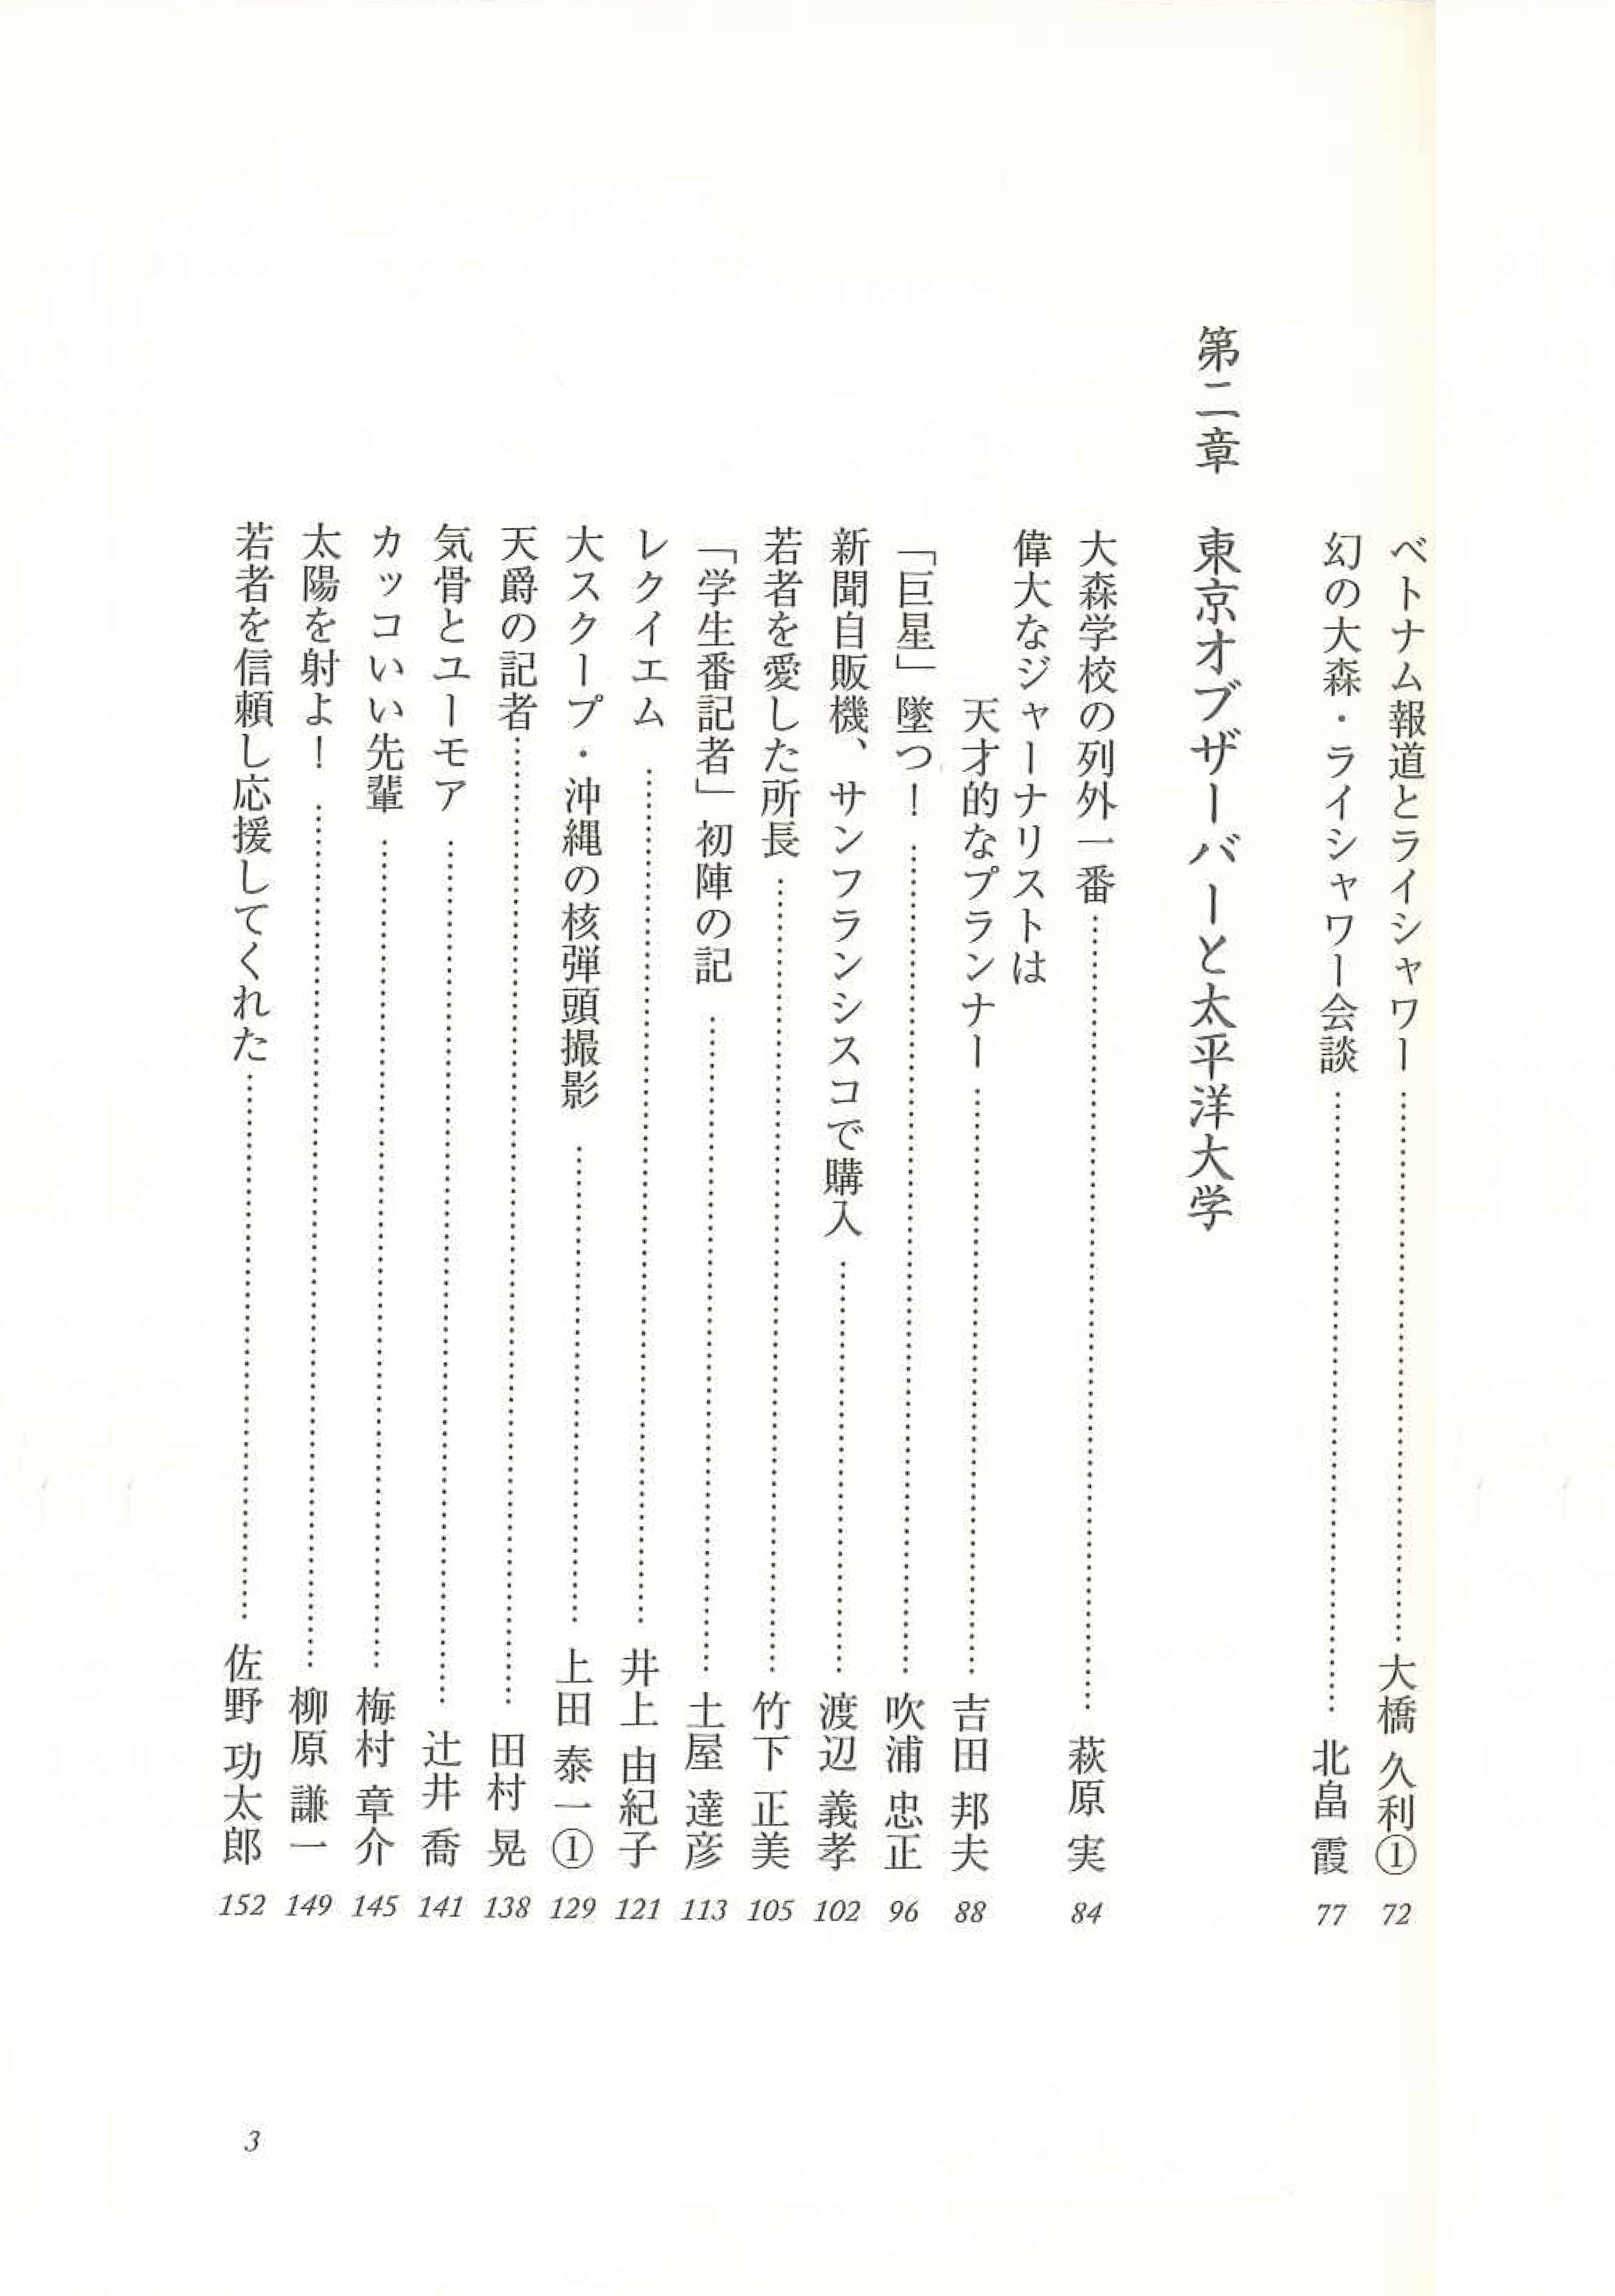 ベトナム報道とライシャワー……大橋 久利① 72
幻の大森・ライシャワー会談……北畠 霞 77
第二章 東京オブザーバーと太平洋大学
大森学校の列外一番……萩原 実 84
偉大なジャーナリストは
天才的なプランナー……吉田 邦夫 88
「巨星」墜つ！……吹浦 忠正 96
新聞自販機、サンフランシスコで購入……渡辺 義孝 102
若者を愛した所長……竹下 正美 105
「学生番記者」初陣の記……土屋 達彦 113
レクイエム……井上 由紀子 121
大スクープ・沖縄の核弾頭撮影……上田 泰一① 129
天爵の記者……田村 晃 138
気骨とユーモア……辻井 喬 141
カッコいい先輩……梅村 章介 145
太陽を射よ！……柳原 謙一 149
若者を信頼し応援してくれた……佐野 功太郎 152
3